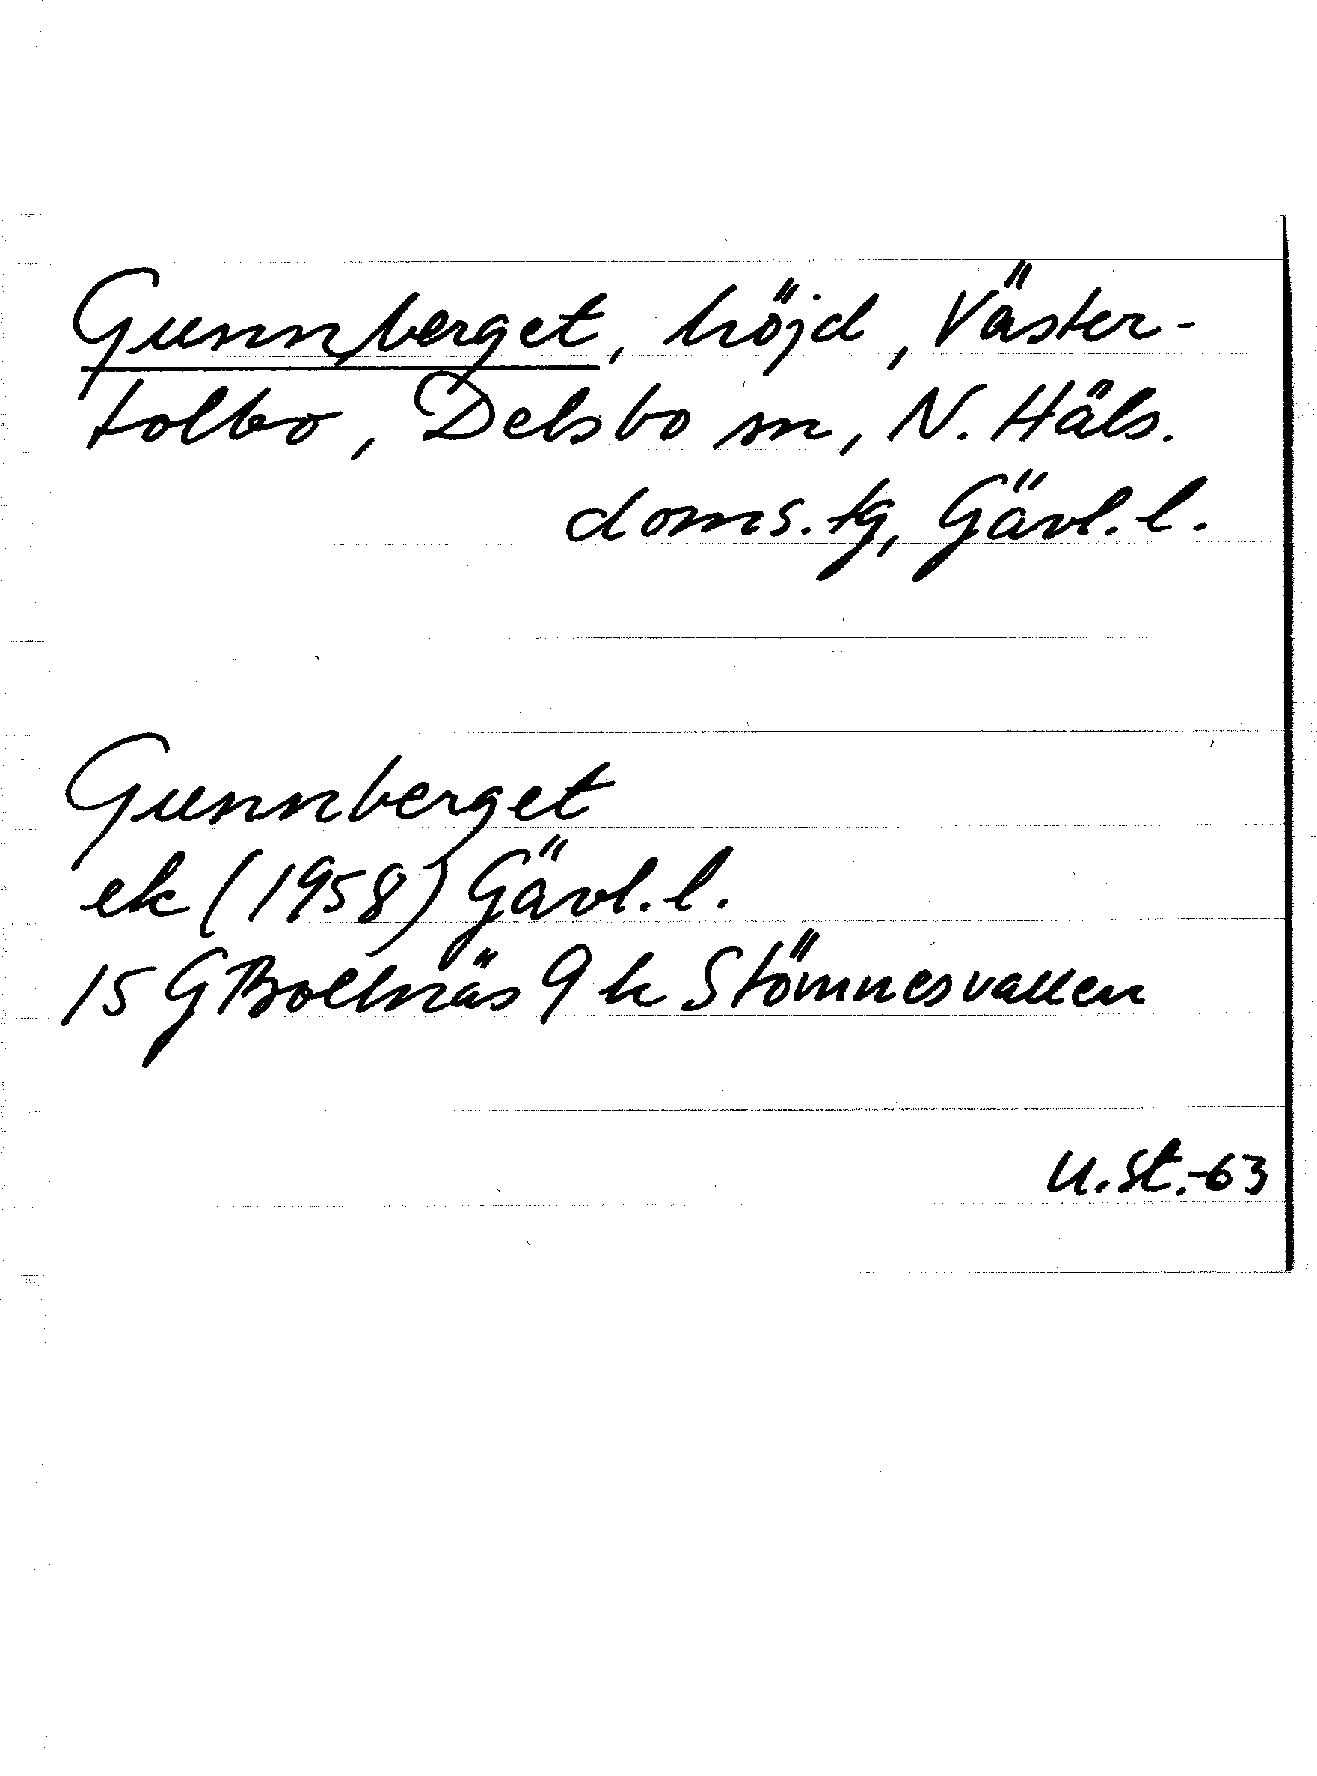 Gunnberget, höjd, Väster-
tolbo, Delsbo sn, N. Häls.
doms. tg, Gävl. l.
Gunnberget
ek (1958) Gävl. l.
15 G Bollnäs 9 h Stömnesvallen
U. St. -63